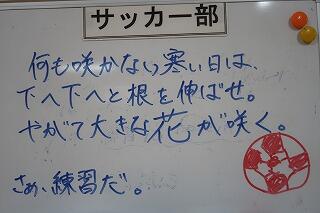 サッカー部
何も咲かない寒い日は、
下へ下へと根を伸ばせ。
やがて大きな花が咲く。
さぁ、練習だ。